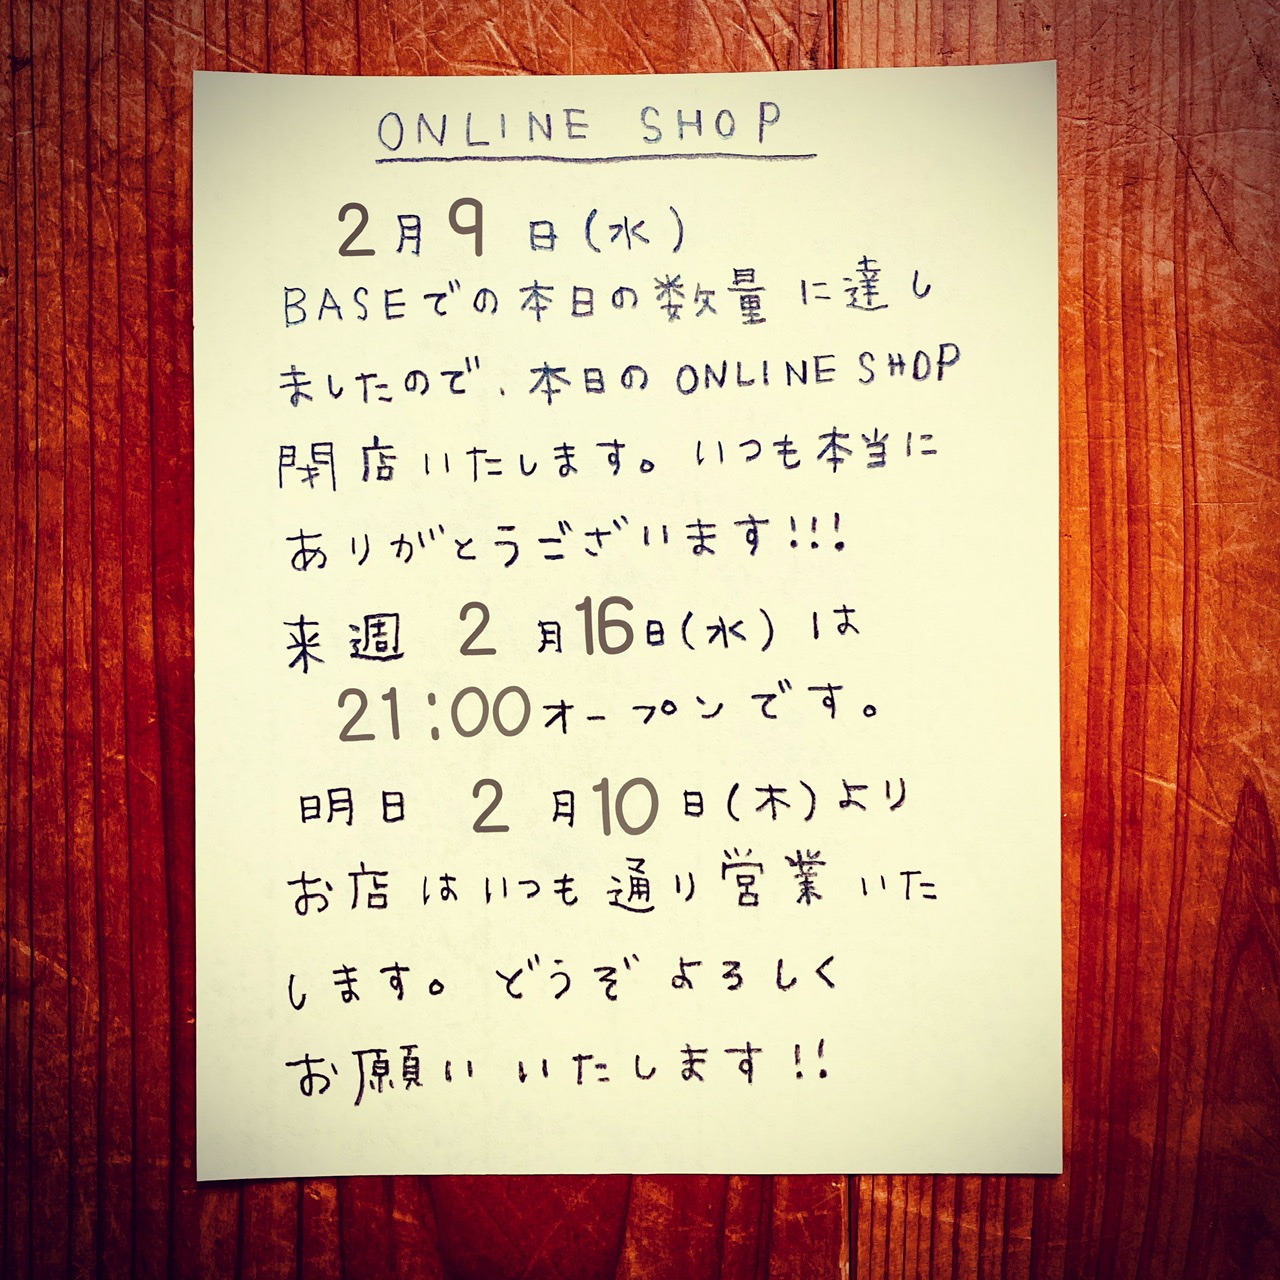 ONLINE SHOP
2月9日(水)
BASEでの本日の数量に達し
ましたので、本日のONLINE SHOP
閉店いたします。いつも本当に
ありがとうございます!!!
来週 2月16日(水)は
21:00オープンです。
明日 2月10日(木)より
お店はいつも通り営業いた
します。どうぞよろしく
お願いいたします!!